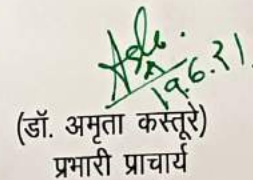 19.6.21
(डॉ. अमृता कस्तूरे)
प्रभारी प्राचार्य